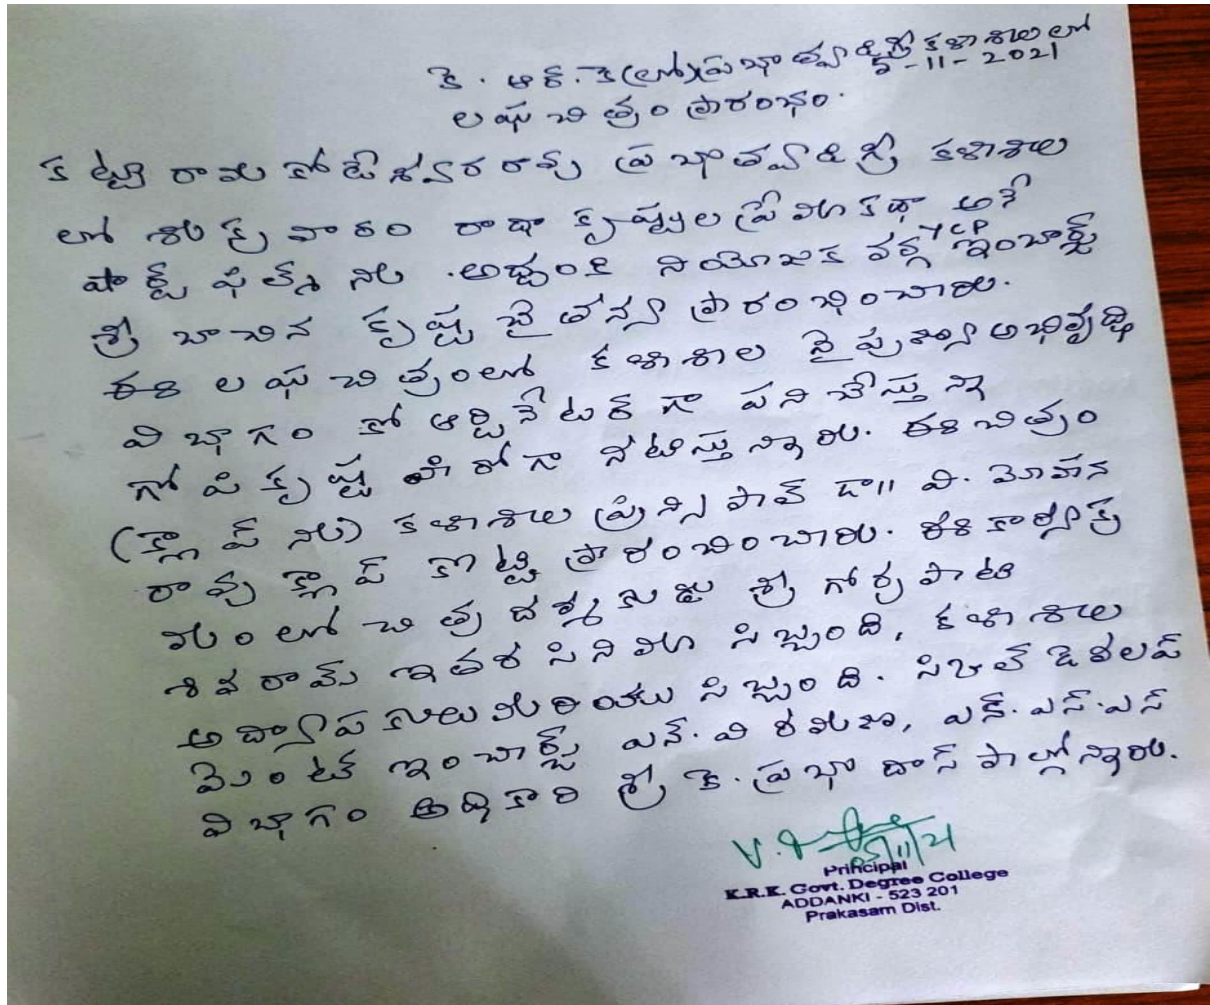 కె. ఆర్. కె (లో) ప్రభుత్వ డిగ్రీ కళాశాలలో
5-11-2021
లఘు చిత్రం ప్రారంభం.
కట్టి రామ కోటేశ్వరరావు ప్రభుత్వ డిగ్రీ కళాశాల
లో శుక్రవారం రాధా కృష్ణుల ప్రేమ కథా అనే
షార్ట్ ఫిల్మ్ ను అద్దంకి నియోజక వర్గ YCP ఇంచార్జ్
శ్రీ బాచిన కృష్ణ చైతన్య ప్రారంభించారు.
ఈ లఘు చిత్రంలో కళాశాల నైపుణ్య అభివృద్ధి
విభాగం కో ఆర్డినేటర్ గా పని చేస్తున్న
గోపి కృష్ణ హీరోగా నటిస్తున్నారు. ఈ చిత్రం
(క్లాప్ ను) కళాశాల ప్రిన్సిపాల్ డా॥ వి. మోహన
రావు క్లాప్ కొట్టి ప్రారంభించారు. ఈ కార్యక్ర
మంలో చిత్ర దర్శకుడు శ్రీ గోర్పాటి
శివ రామ్ ఇతర సినిమా సిబ్బంది, కళాశాల
అధ్యాపకులు మరియు సిబ్బంది. స్కిల్ డెవలప్
మెంట్ ఇంచార్జ్ ఎన్. వి రమణ, ఎన్.ఎస్.ఎస్
విభాగం అధికారి శ్రీ కె. ప్రభుదాస్ పాల్గొన్నారు.
05/11/21
Principal
K.R.K. Govt. Degree College
ADDANKI - 523 201
Prakasam Dist.